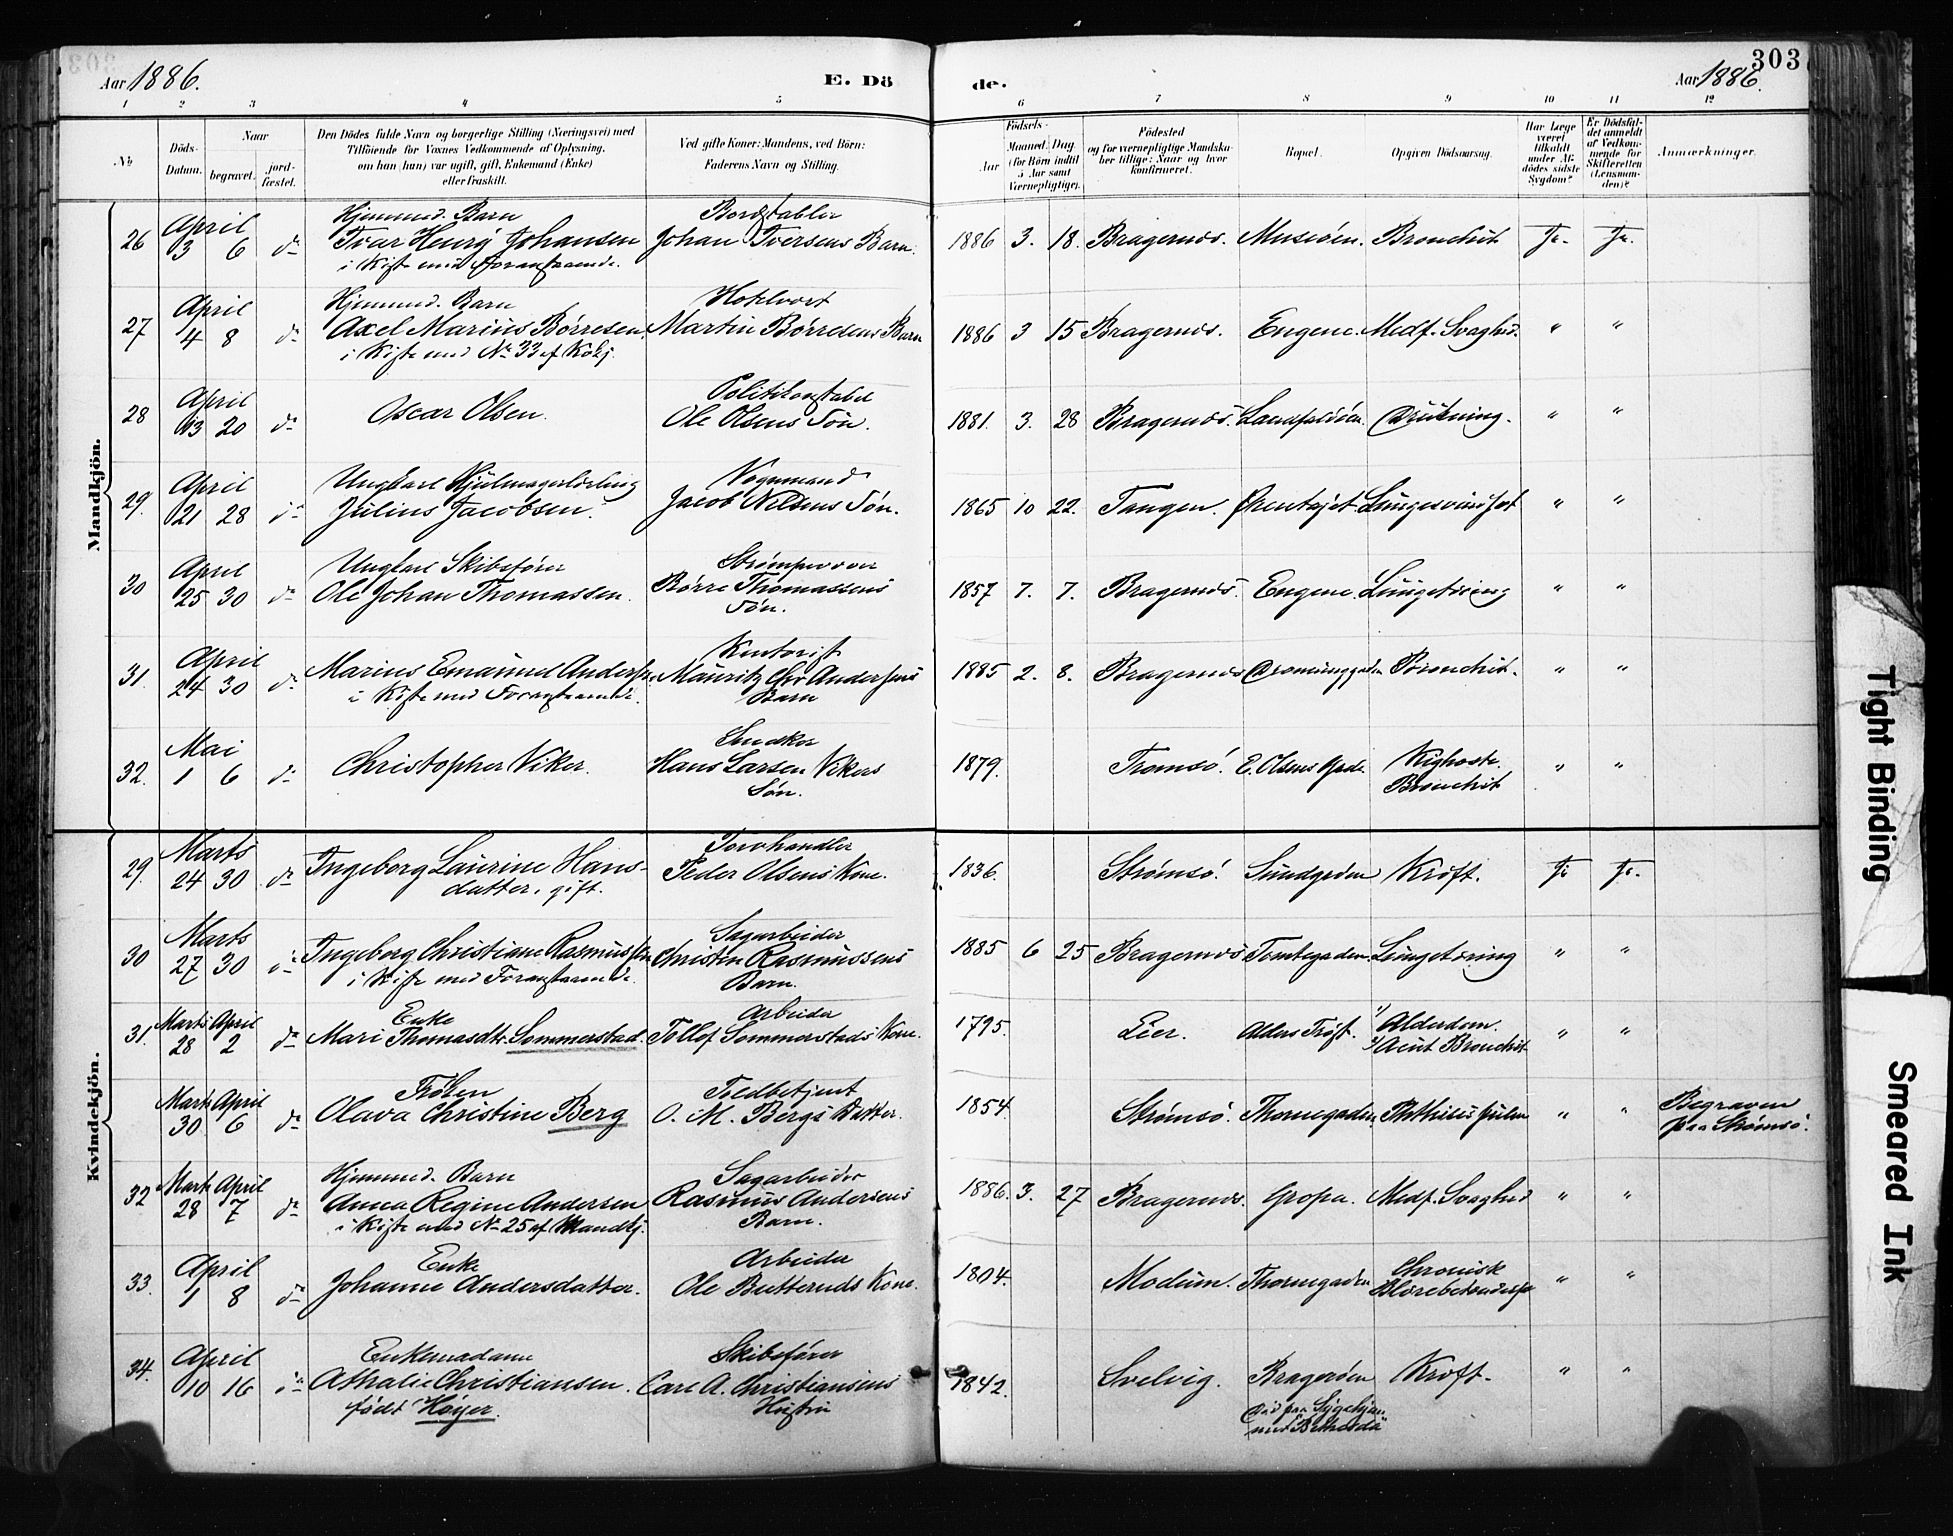 303
Aar 1886.
E. Dö
de.
Aar 1886.
1 2 3 4 5 6 7 8 9 10 11 12
No
Döds-Datum.
Naar
begravet.
jord-fæstet.
Den Dödes fulde Navn og borgerlige Stilling (Næringsvei) med
Tilföiende for Voxnes Vedkommende af Oplysning,
om han (hun) var ugift, gift, Enkemand (Enke)
eller fraskilt.
Ved gifte Koner: Mandens, ved Börn:
Faderens Navn og Stilling.
Födsels-
Aar
Maaned. Dag.
(for Börn indtil
5 Aar samt
Værnepligtige).
Födested
og for værnepligtige Mandskaber tillige: Naar og hvor
konfirmeret.
Bopæl.
Opgiven Dödsaarsag.
Har Læge
været
tilkaldt
under Afdödes sidste
Sygdom?
Er Dödsfaldet anmeldt
af Vedkommende for
Skifteretten
(Lensmanden)?
Anmærkninger.
Mandkjön.
26 April 3 6 do Hjemmed. Barn
Ivar Henry Johansen
i Kiste med Foranstaaende.
Bordstabler
Johan Iversens Barn.
1886 3. 18. Bragernæs. Museöen. Bronchit Ja. Ja.
27 April 4 8 do Hjemmed. Barn
Axel Marius Børresen.
i Kiste med No 33 af Kvkj.
Hotelvært
Martin Børresens Barn
1886 3 15 Bragernæs. Engene. Medf. Svaghed. " "
28 April 13 20 do Oscar Olsen.
Politikonstabel
Ole Olsens Søn.
1881. 3. 28 Bragernæs. Landfaldöen. Drukning. " "
29. April 21 28 do Ungkarl Hjulmagerlærling
Julius Jacobsen.
Vognmand
Jacob Nilsens Søn.
1865 10 22. Tangen. Lungesvindsot " "
30 April 25 30 do Ungkarl Skibsfører
Ole Johan Thomassen.
Børre Thomassens
Søn.
1857 7. 7. Bragernæs. Engene. Lungetæring " "
31. April 24 30 do Marius Emanuel Andersen
i Kiste med Foranstaaende.
Kontorist
Mauritz Chr Andersens
Barn
1885 2. 8. Bragernæs Dronninggaden Bronchit. " "
32. Mai 1 6 do Christopher Viker.
Snedker
Hans Larsen Vikers
Søn.
1879. Tromsö. E. Olsens Gade. Kighoste.
Bronchit " "
Kvindekjön.
29. Marts 24 30 do Ingeborg Laurine Hans-
datter, gift.
Torvhandler
Peder Olsens Kone.
1836. Strømsö. Sundgaden Kræft. Ja Ja.
30 Marts 27 30 do Ingeborg Christiane Rasmussen
i Kiste med Foranstaaende.
Sagarbeider
Christen Rasmussens
Barn.
1885 6 25 Bragernæs Tomtegaden. Lungetæring " "
31. Marts 28 April 2 do Enke
Mari Thomasdtr. Sommerstad.
Arbeider
Tollof Sommerstads Kone.
1795. Lier. Alders Trøst. 1) Alderdom.
2) Acut Bronchit " "
Marts 30 April 6 do Frøken
Olava Christine Berg
Toldbetjent
O. M. Bergs Datter.
1854. Strømsö. Thornegaden Phthisis pulm " " Begraven
paa Strømsö.
32 Marts 28 April 7 do Hjemmed. Barn
Anna Regine Andersen
i Kiste med No 25 af Mandkj.
Sagarbeider
Rasmus Andersens
Barn.
1886. 3. 27 Bragernæs. Gropa. Medf. Svaghed " "
33. April 1 8 do Enke
Johanne Andersdatter.
Arbeider
Ole Butteruds Kone.
1804. Modum. Thornegaden Chronisk
Blærebetændelse " "
34. April 10 16 do Enkemadame
Athalie Christiansen.
født Høyer.
Skibsfører
Carl A. Christiansens
Hustru
1842. Svelvig. Bragerøen
Død paa Sygehjem-
met "Bethesda" Kræft. " "
Tight Binding
Smeared Ink